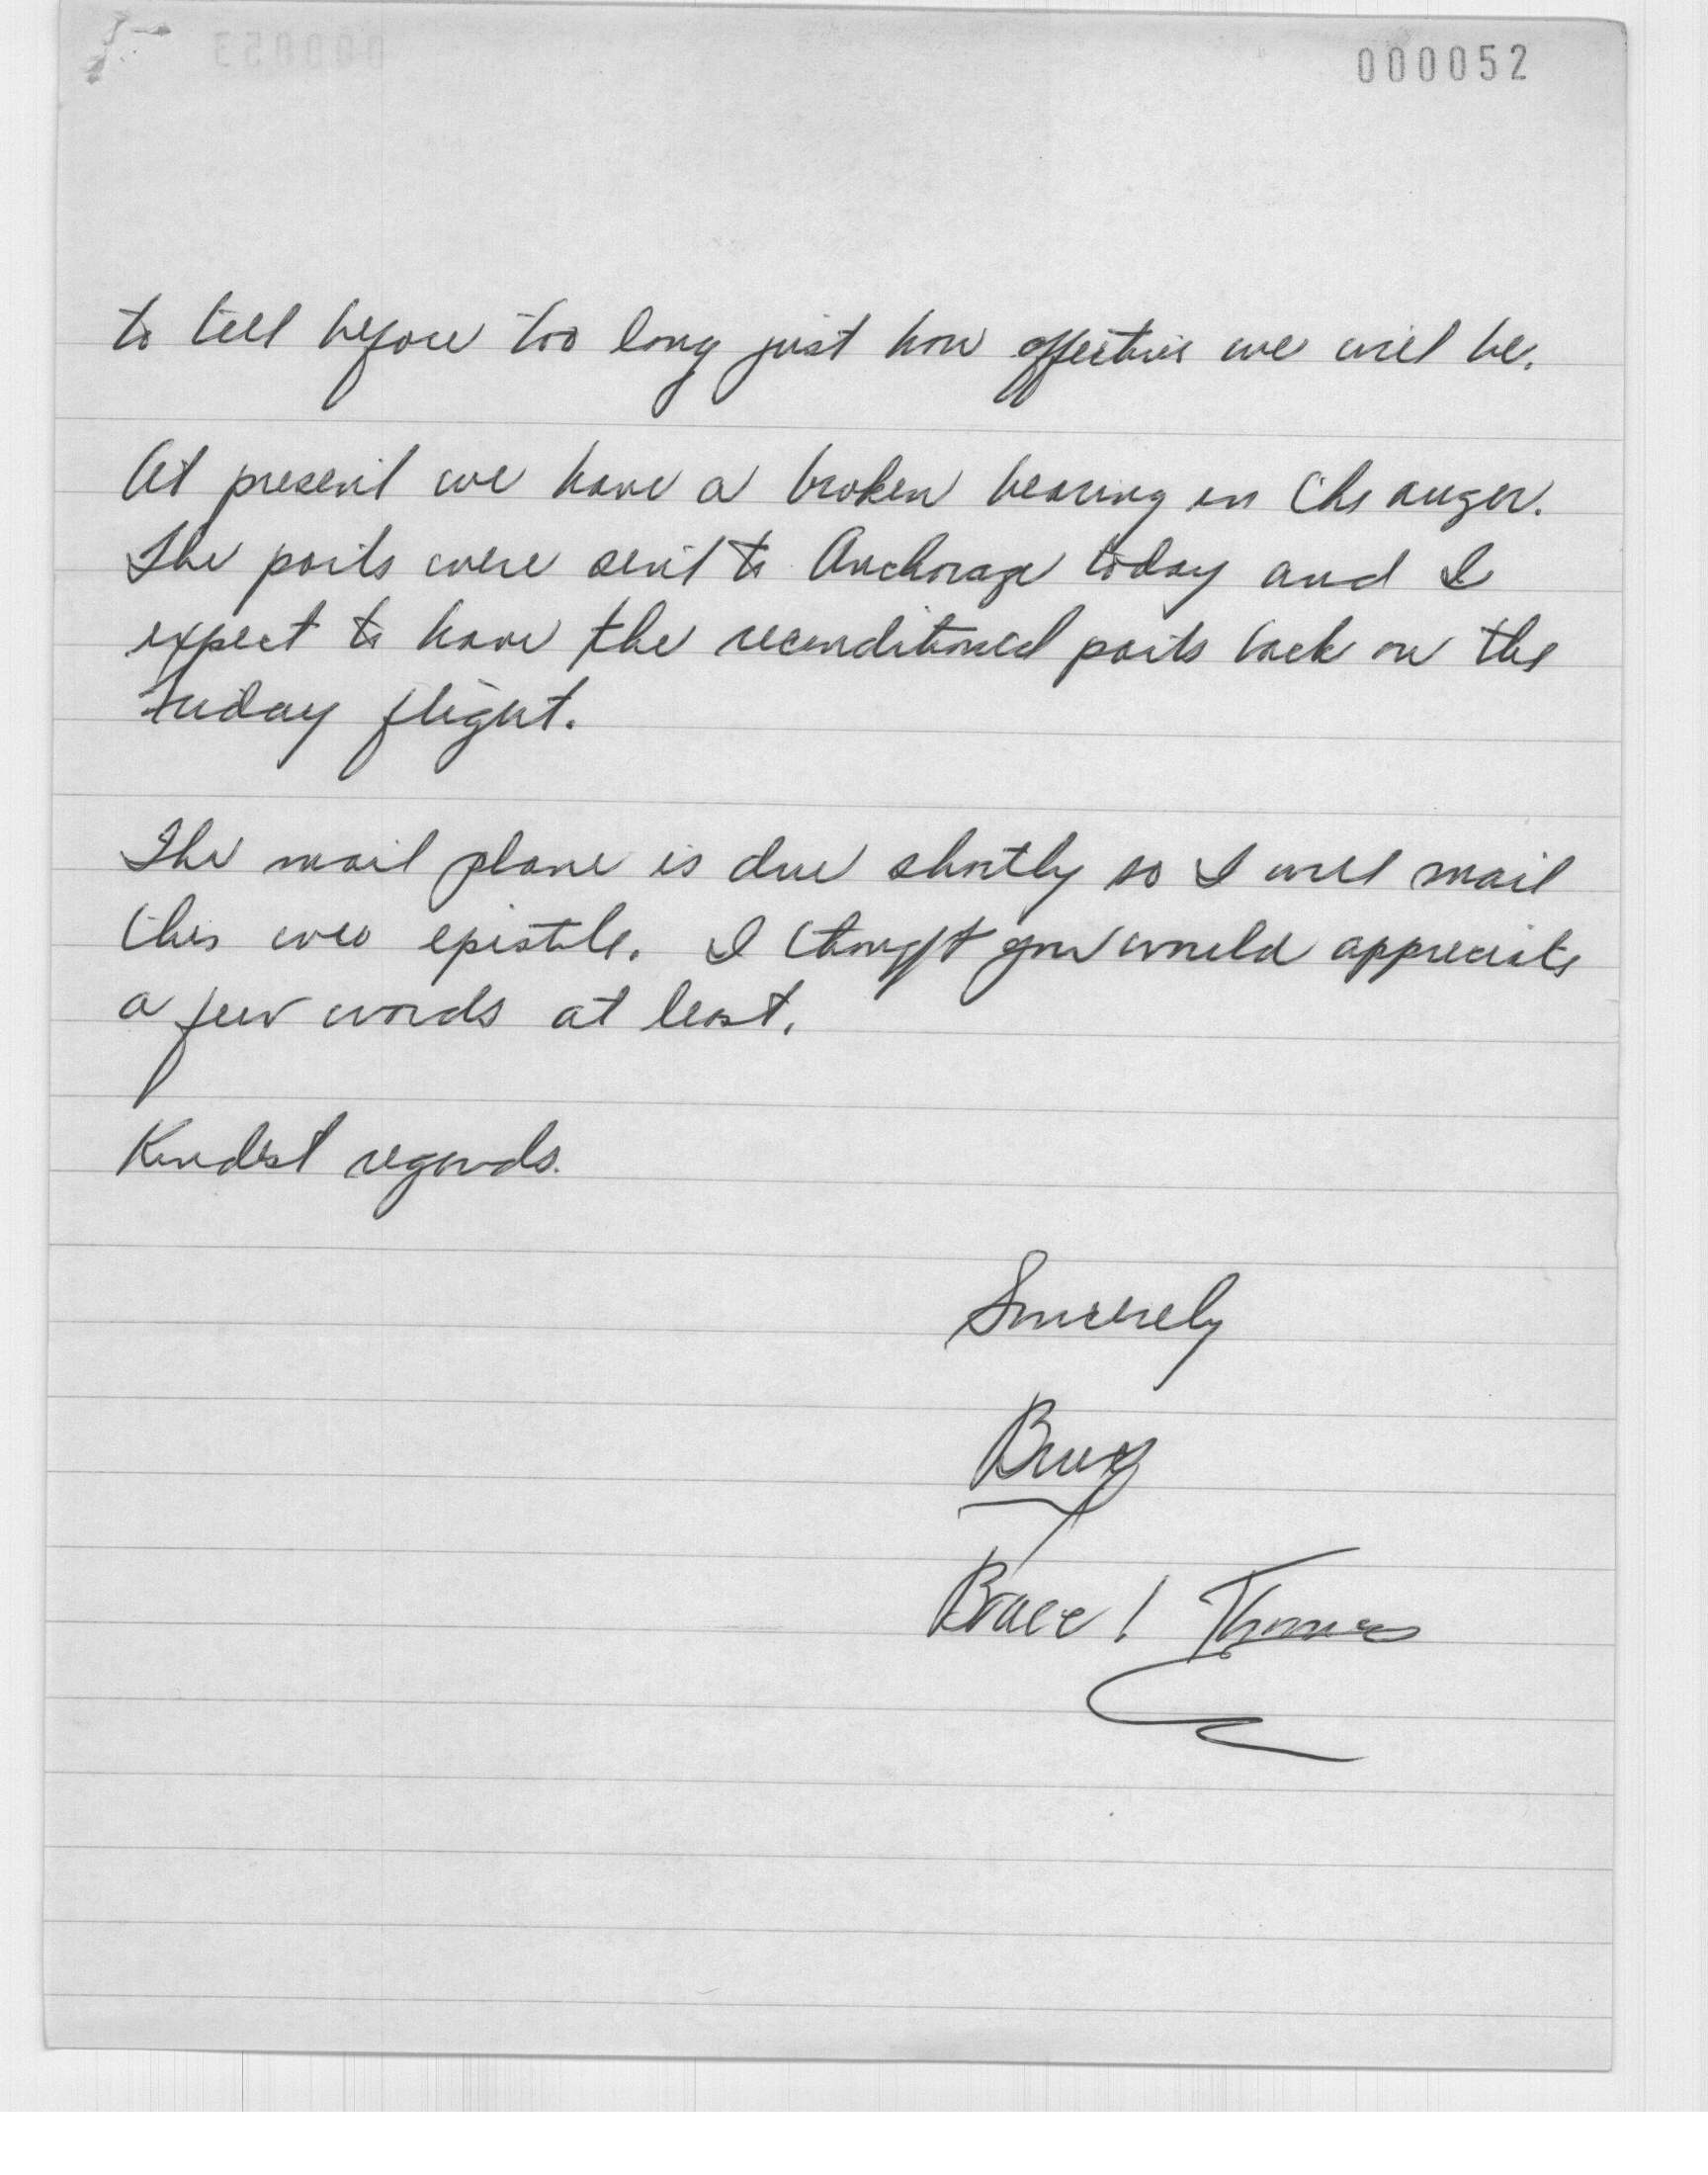 000052
to tell before too long just how effective we will be.
At present we have a broken bearing in the auger.
The parts were sent to Anchorage today and I
expect to have the reconditioned parts back on the
Friday flight.
The mail plane is due shortly so I will mail
this wee epistle. I thought you would appreciate
a few words at least.
Kindest regards.
Sincerely
Bruce
Bruce I Thomas